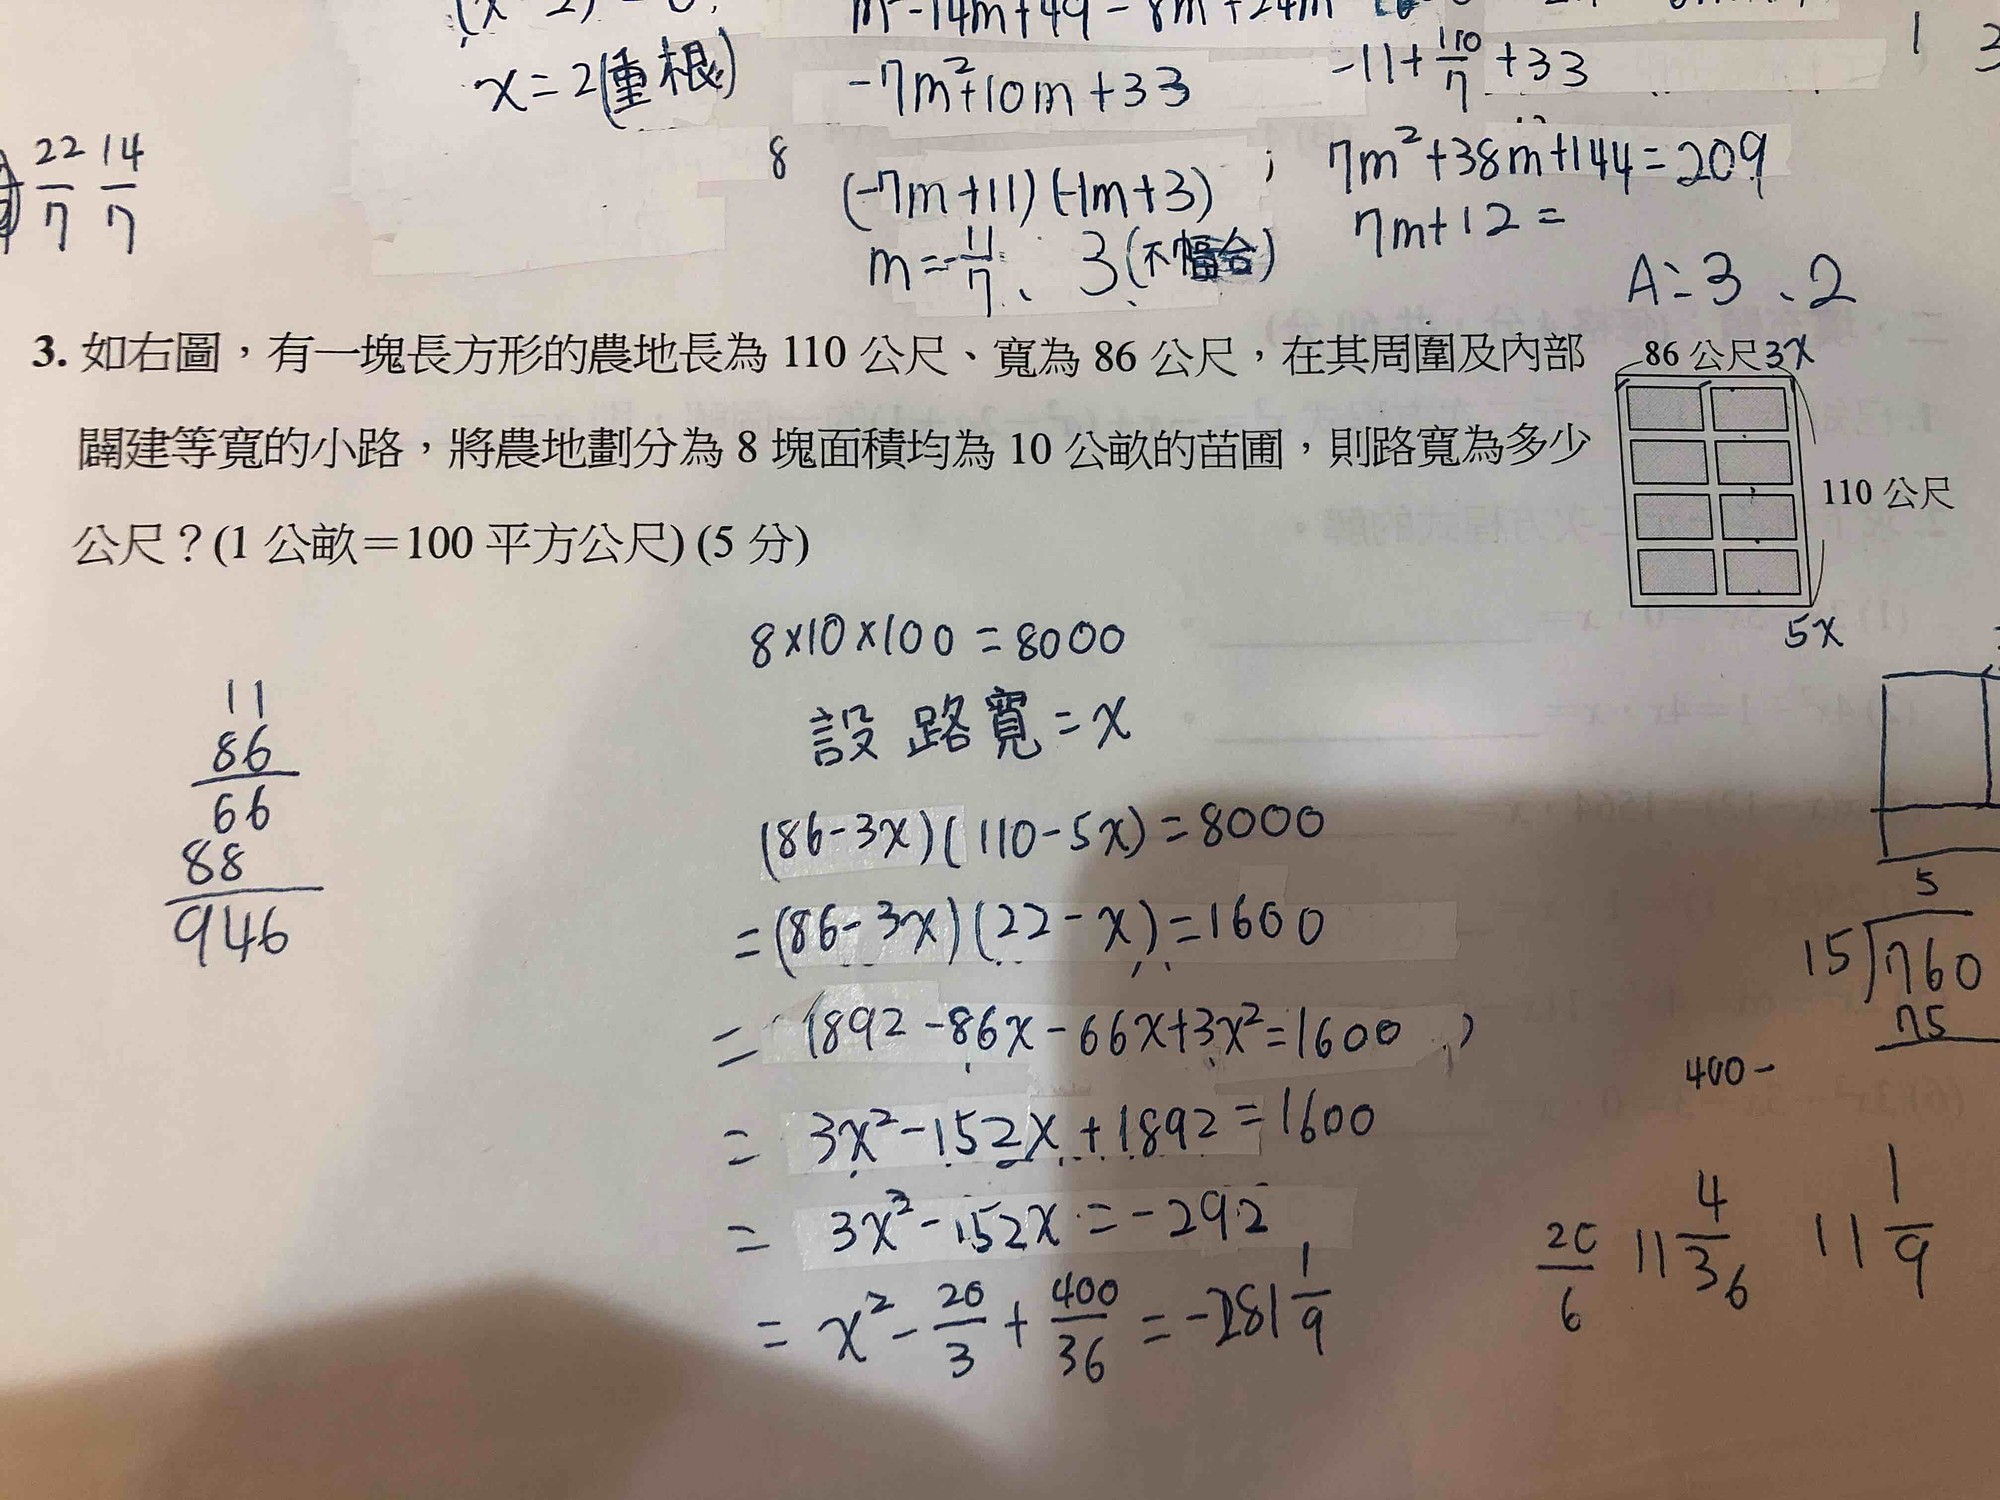 x=2(重根)
-7m²+10m+33
-11+110/7+33
22/7 14/7
8
(-7m+11)(-1m+3)
7m²+38m+144=209
7m+12=
m=-11/7、3(不符合)
A:3、2
3. 如右圖，有一塊長方形的農地長為 110 公尺、寬為 86 公尺，在其周圍及內部
闢建等寬的小路，將農地劃分為 8 塊面積均為 10 公畝的苗圃，則路寬為多少
公尺？(1 公畝＝100 平方公尺) (5 分)
86 公尺 3x
110 公尺
5x
8×10×100=8000
設 路寬=x
(86-3x)(110-5x)=8000
=(86-3x)(22-x)=1600
= 1892-86x-66x+3x²=1600
= 3x²-152x+1892=1600
= 3x²-152x=-292
= x²-20/3+400/36=-281 1/9
11
86
66
88
946
5
15)760
75
400-
20/6 11 4/36 11 1/9